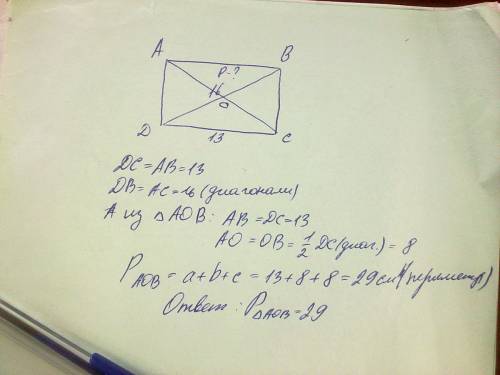 A B
P-?
16
O
D 13 C
DC = AB = 13
DB = AC = 16 (диагонали)
А из △AOB: AB = DC = 13
AO = OB = 1/2 DC (диаг.) = 8
P AOB = a + b + c = 13 + 8 + 8 = 29 см (периметр)
Ответ: P△AOB = 29